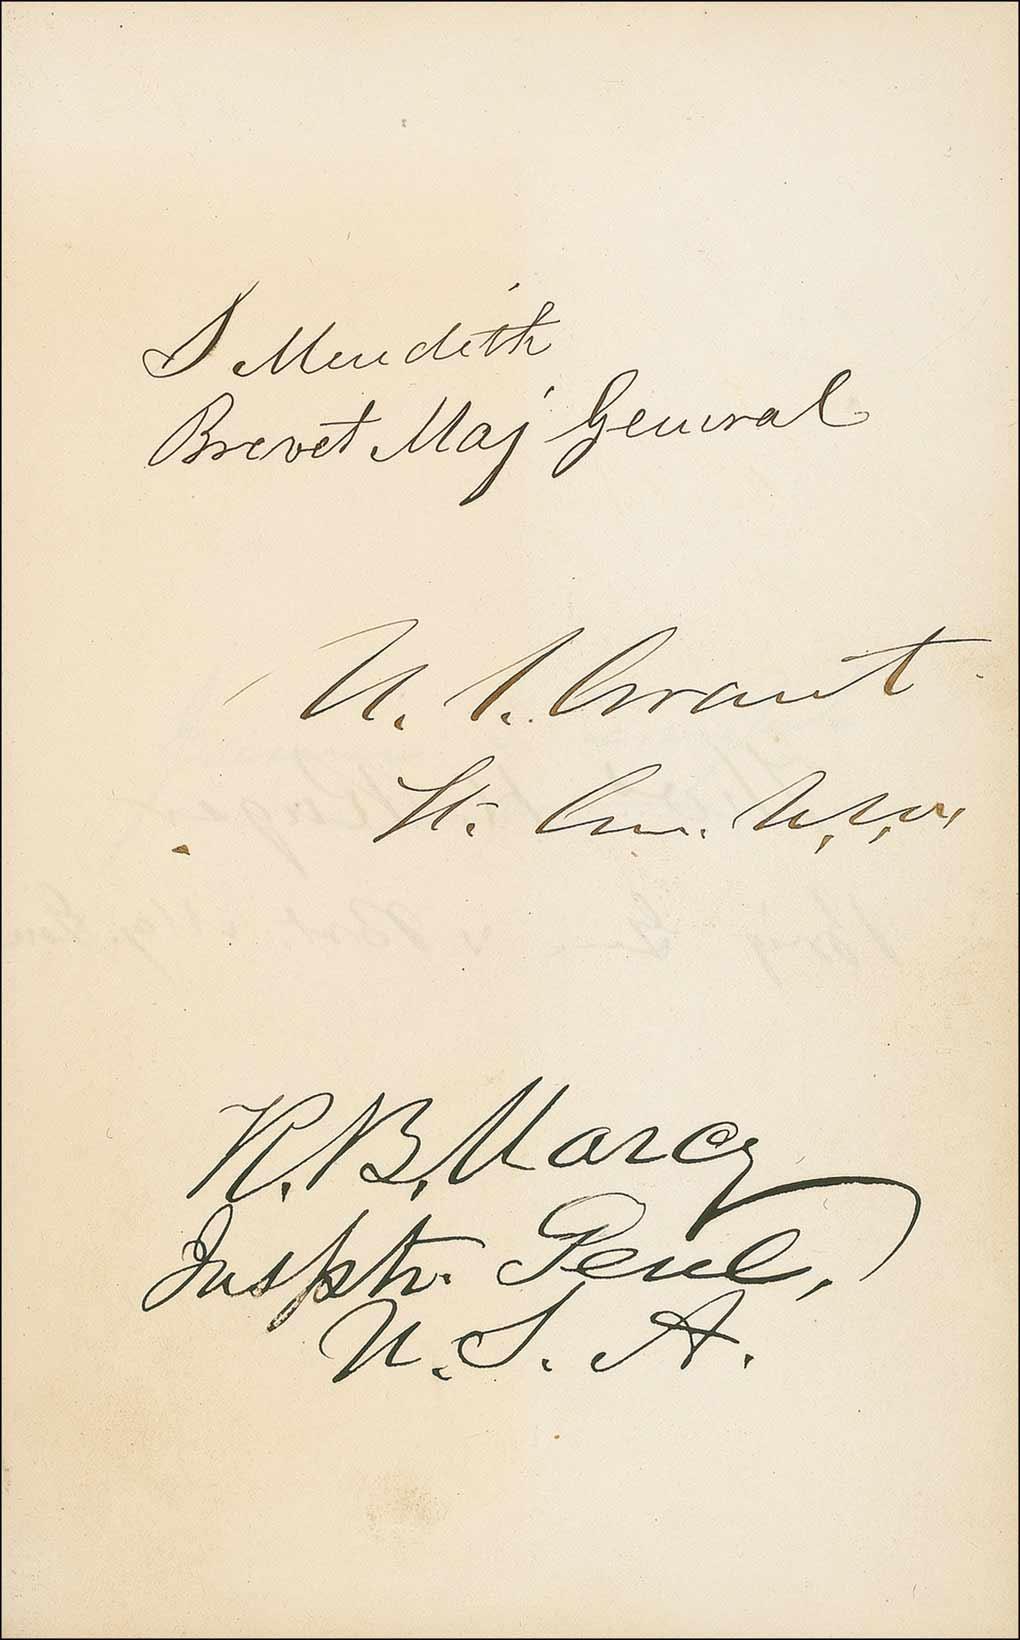 S Meredith
Brevet Maj General
U. S. Grant
Lt. Gn. U.S.A,
R. B. Marcy
Insptr. Genl,
U. S. A.